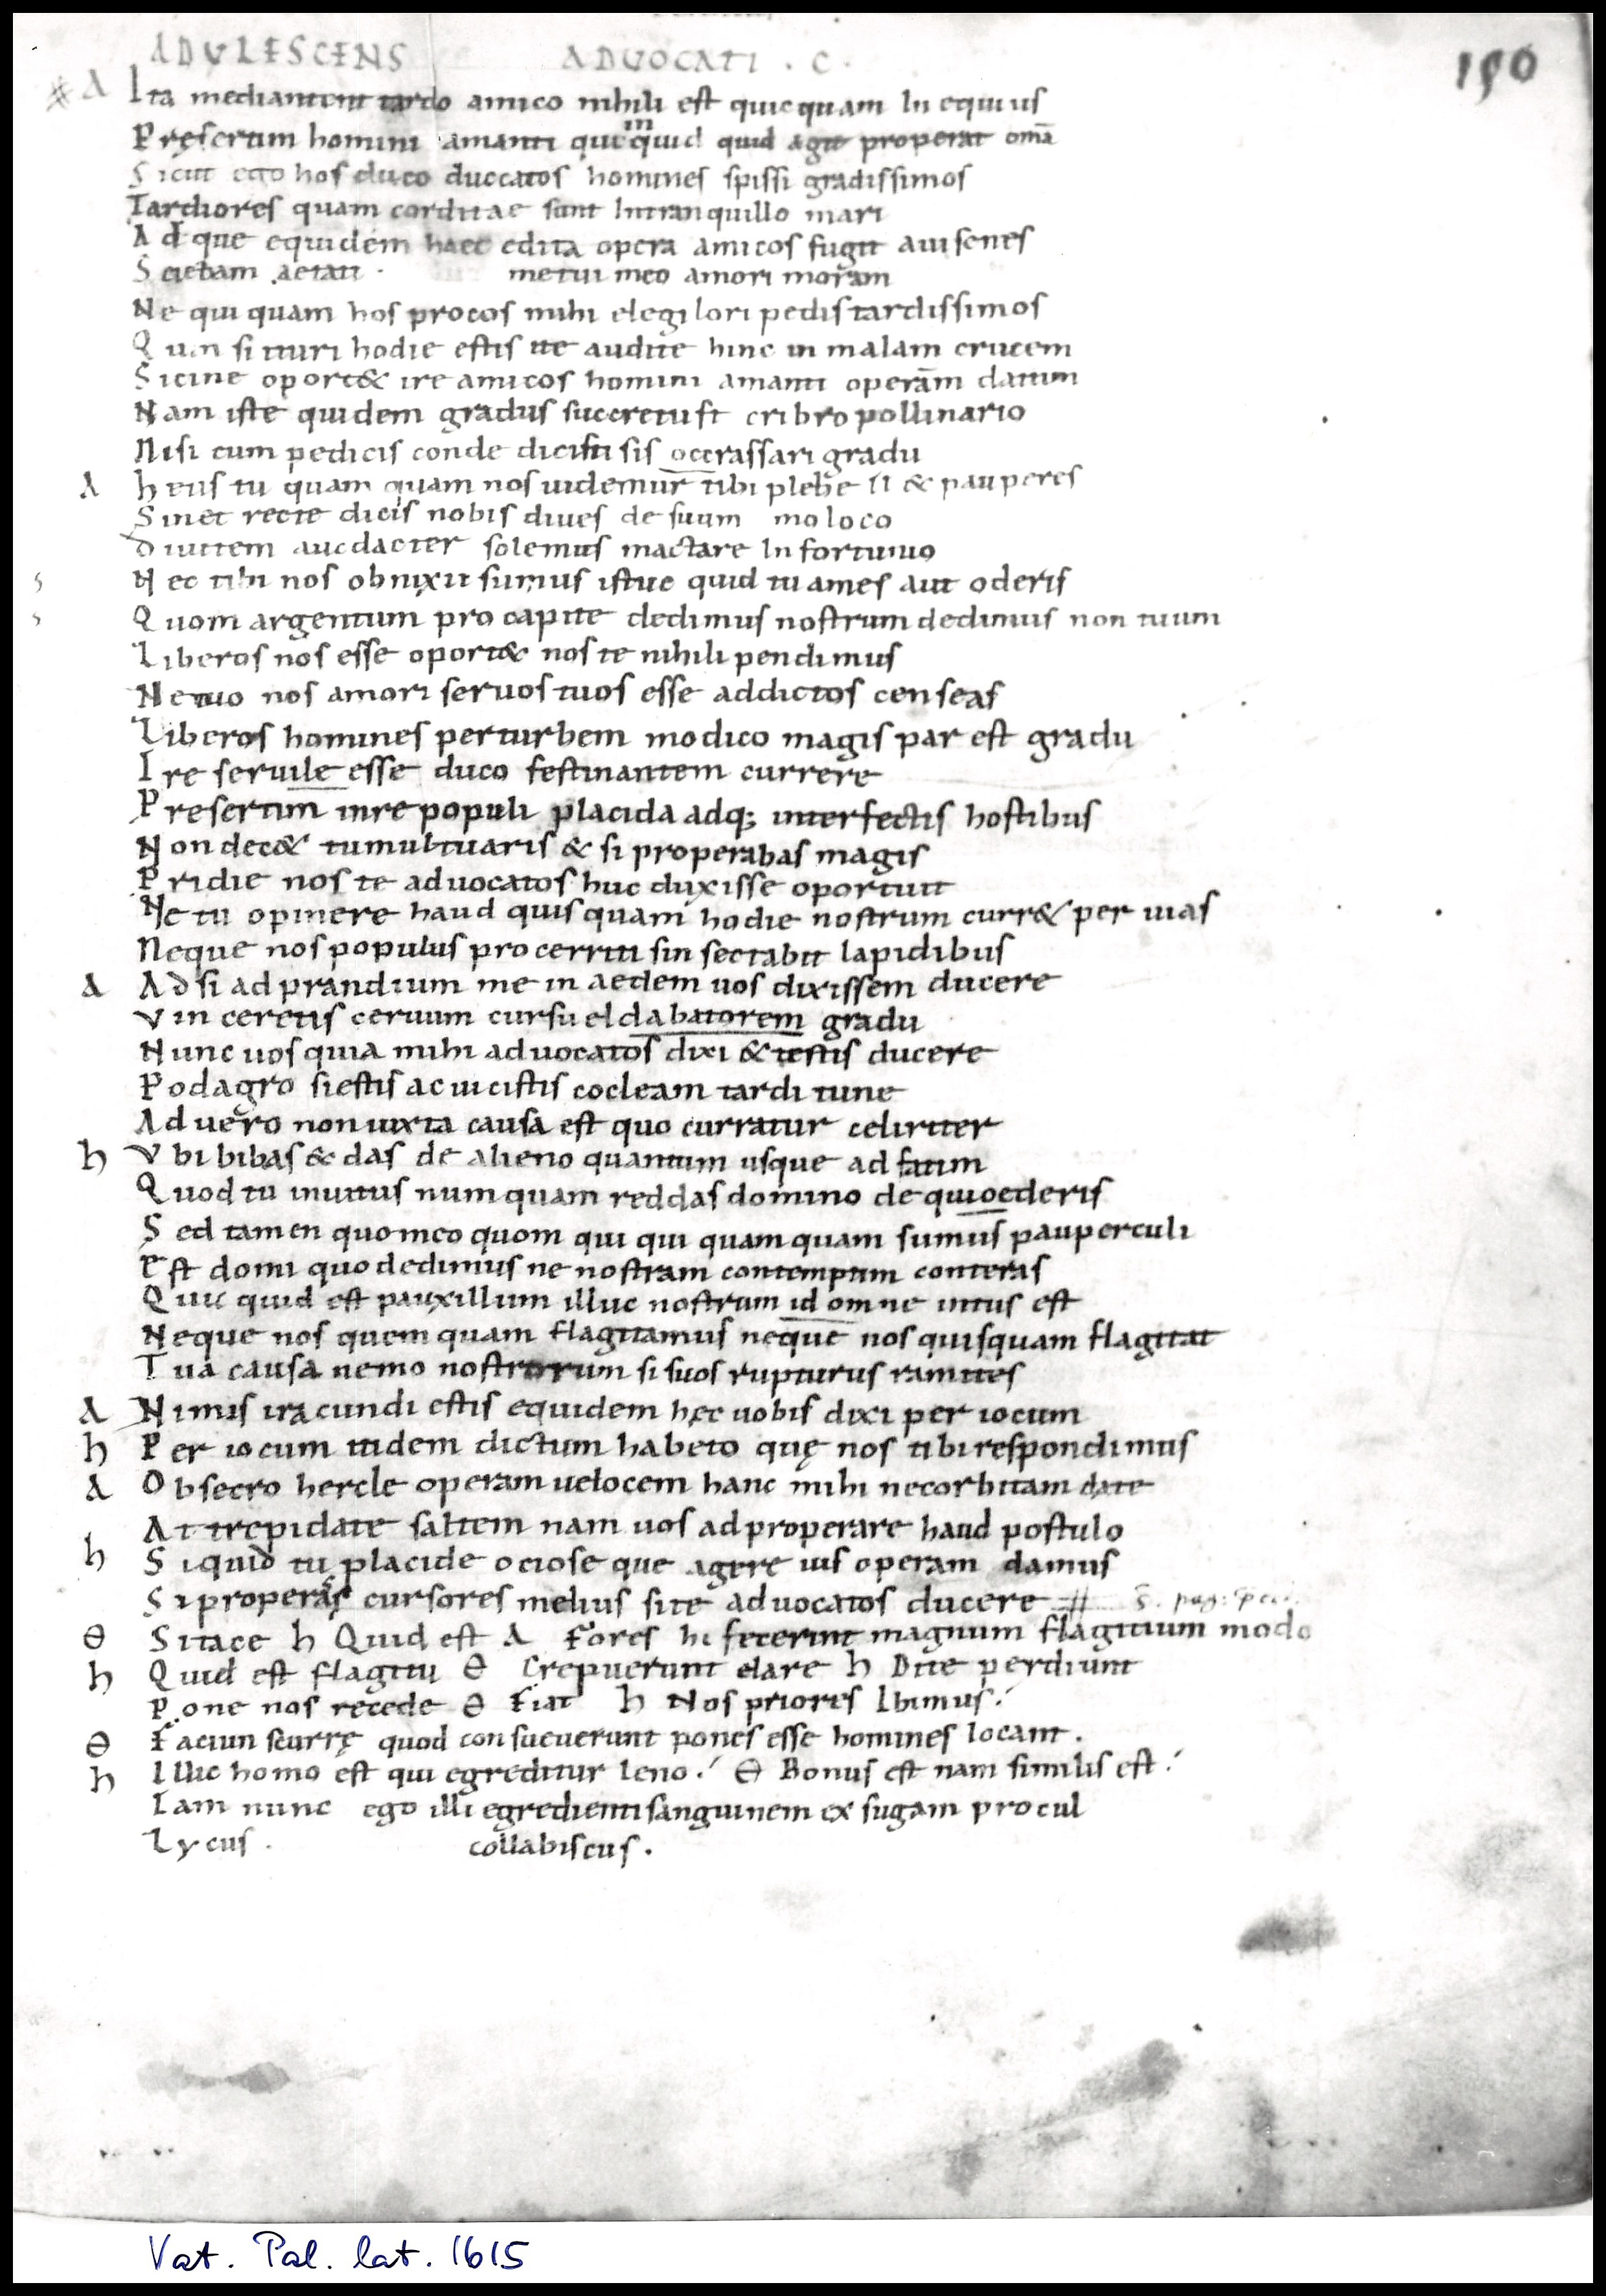 ADULESCENS ADUOCATI . C .
190
A Ita mediantent tardo amico nihili est quicquam In equius
Pręsertim homini amanti quicquid quid agit properat omā
Sicut ego hos duco duocatos homines spissi gradissimos
Tardiores quam corduae sunt Intranquillo mari
Ad que equidem haec edita opera amicos fugit aui senes
Sciebam aetati . metui meo amori moram
Ne qui quam hos procos mihi elegi lori pedis tardissimos
Quin si ituri hodie estis ite audite hinc in malam crucem
Sicine oport& ire amicos homini amanti operam datum
Nam iste quidem gradus succretust cribro pollinario
Nisi cum pedicis conde dicisti sis occrassari gradu
A heus tu quam quam nos uidemur tibi plebe II & pauperes
Sinec recte dicis nobis diues de suum mo loco
Diuitem aucdacter solemus mactare Infortunio
Nec tibi nos obnixii sumus istuc quid tu ames aut oderis
Quom argentum pro capite dedimus nostrum dedimus non tuum
Liberos nos esse oport& nos te nihili pendimus
Ne tuo nos amori seruos tuos esse addictos censeas
Liberos homines per turbem modico magis par est gradu
Ire seruile esse duco festinantem currere
Presertim inre populi placida adq; interfectis hostibus
Non dec& tumultuaris & si properabas magis
Pridie nos te aduocatos huc duxisse oportuit
Ne tu opinere haud quisquam hodie nostrum curr& per uias
Neque nos populus pro cerriti sin sectabit lapidibus
A Ad si ad prandium me in aedem uos dixissem ducere
Vin ceretis ceruum cursu el dabatorem gradu
Nunc uos quia mihi aduocatos dixi & testis ducere
Podagro si estis ac uicistis cocleam tardi tune
Ad uero non iuxta causa est quo curratur celiriter
h Vbi bibas & das de alieno quantum usque ad fatim
Quod tu inuitus numquam reddas domino de quioederis
Sed tamen quomeo quom qui qui quam quam sumus pauperculi
Est domi quo dedimus ne nostram contemptim conteras
Quic quid est pauxillum illuc nostrum id omne intus est
Neque nos quemquam flagitamus neque nos quisquam flagitat
Tua causa nemo nostrorum si suos rupturus ramites
A Nimis iracundi estis equidem hęc uobis dixi per iocum
h Per iocum itidem dictum habeto quę nos tibi respondimus
A Obsecro hercle operam uelocem hanc mihi necorbitam date
At trepidate saltem nam uos adproperare haud postulo
h Siquid tu placide ociose que agere uis operam damus
Si properas cursores melius site aduocatos ducere
Θ Sitace h Quid est A Fores hi fecerint magnum flagitium modo
h Quid est flagitii Θ Crepuerunt clare h Dite perdiunt
Pone nos recede Θ Fiat h Nos priores Ibimus.
Θ Faciun scurrę quod consueuerunt pones esse homines locant.
h Illic homo est qui egreditur leno. Θ Bonus est nam similis est.
Iam nunc ego illi egredienti sanguinem exsugam procul
Lycus . collabiscus .
Vat. Pal. lat. 1615